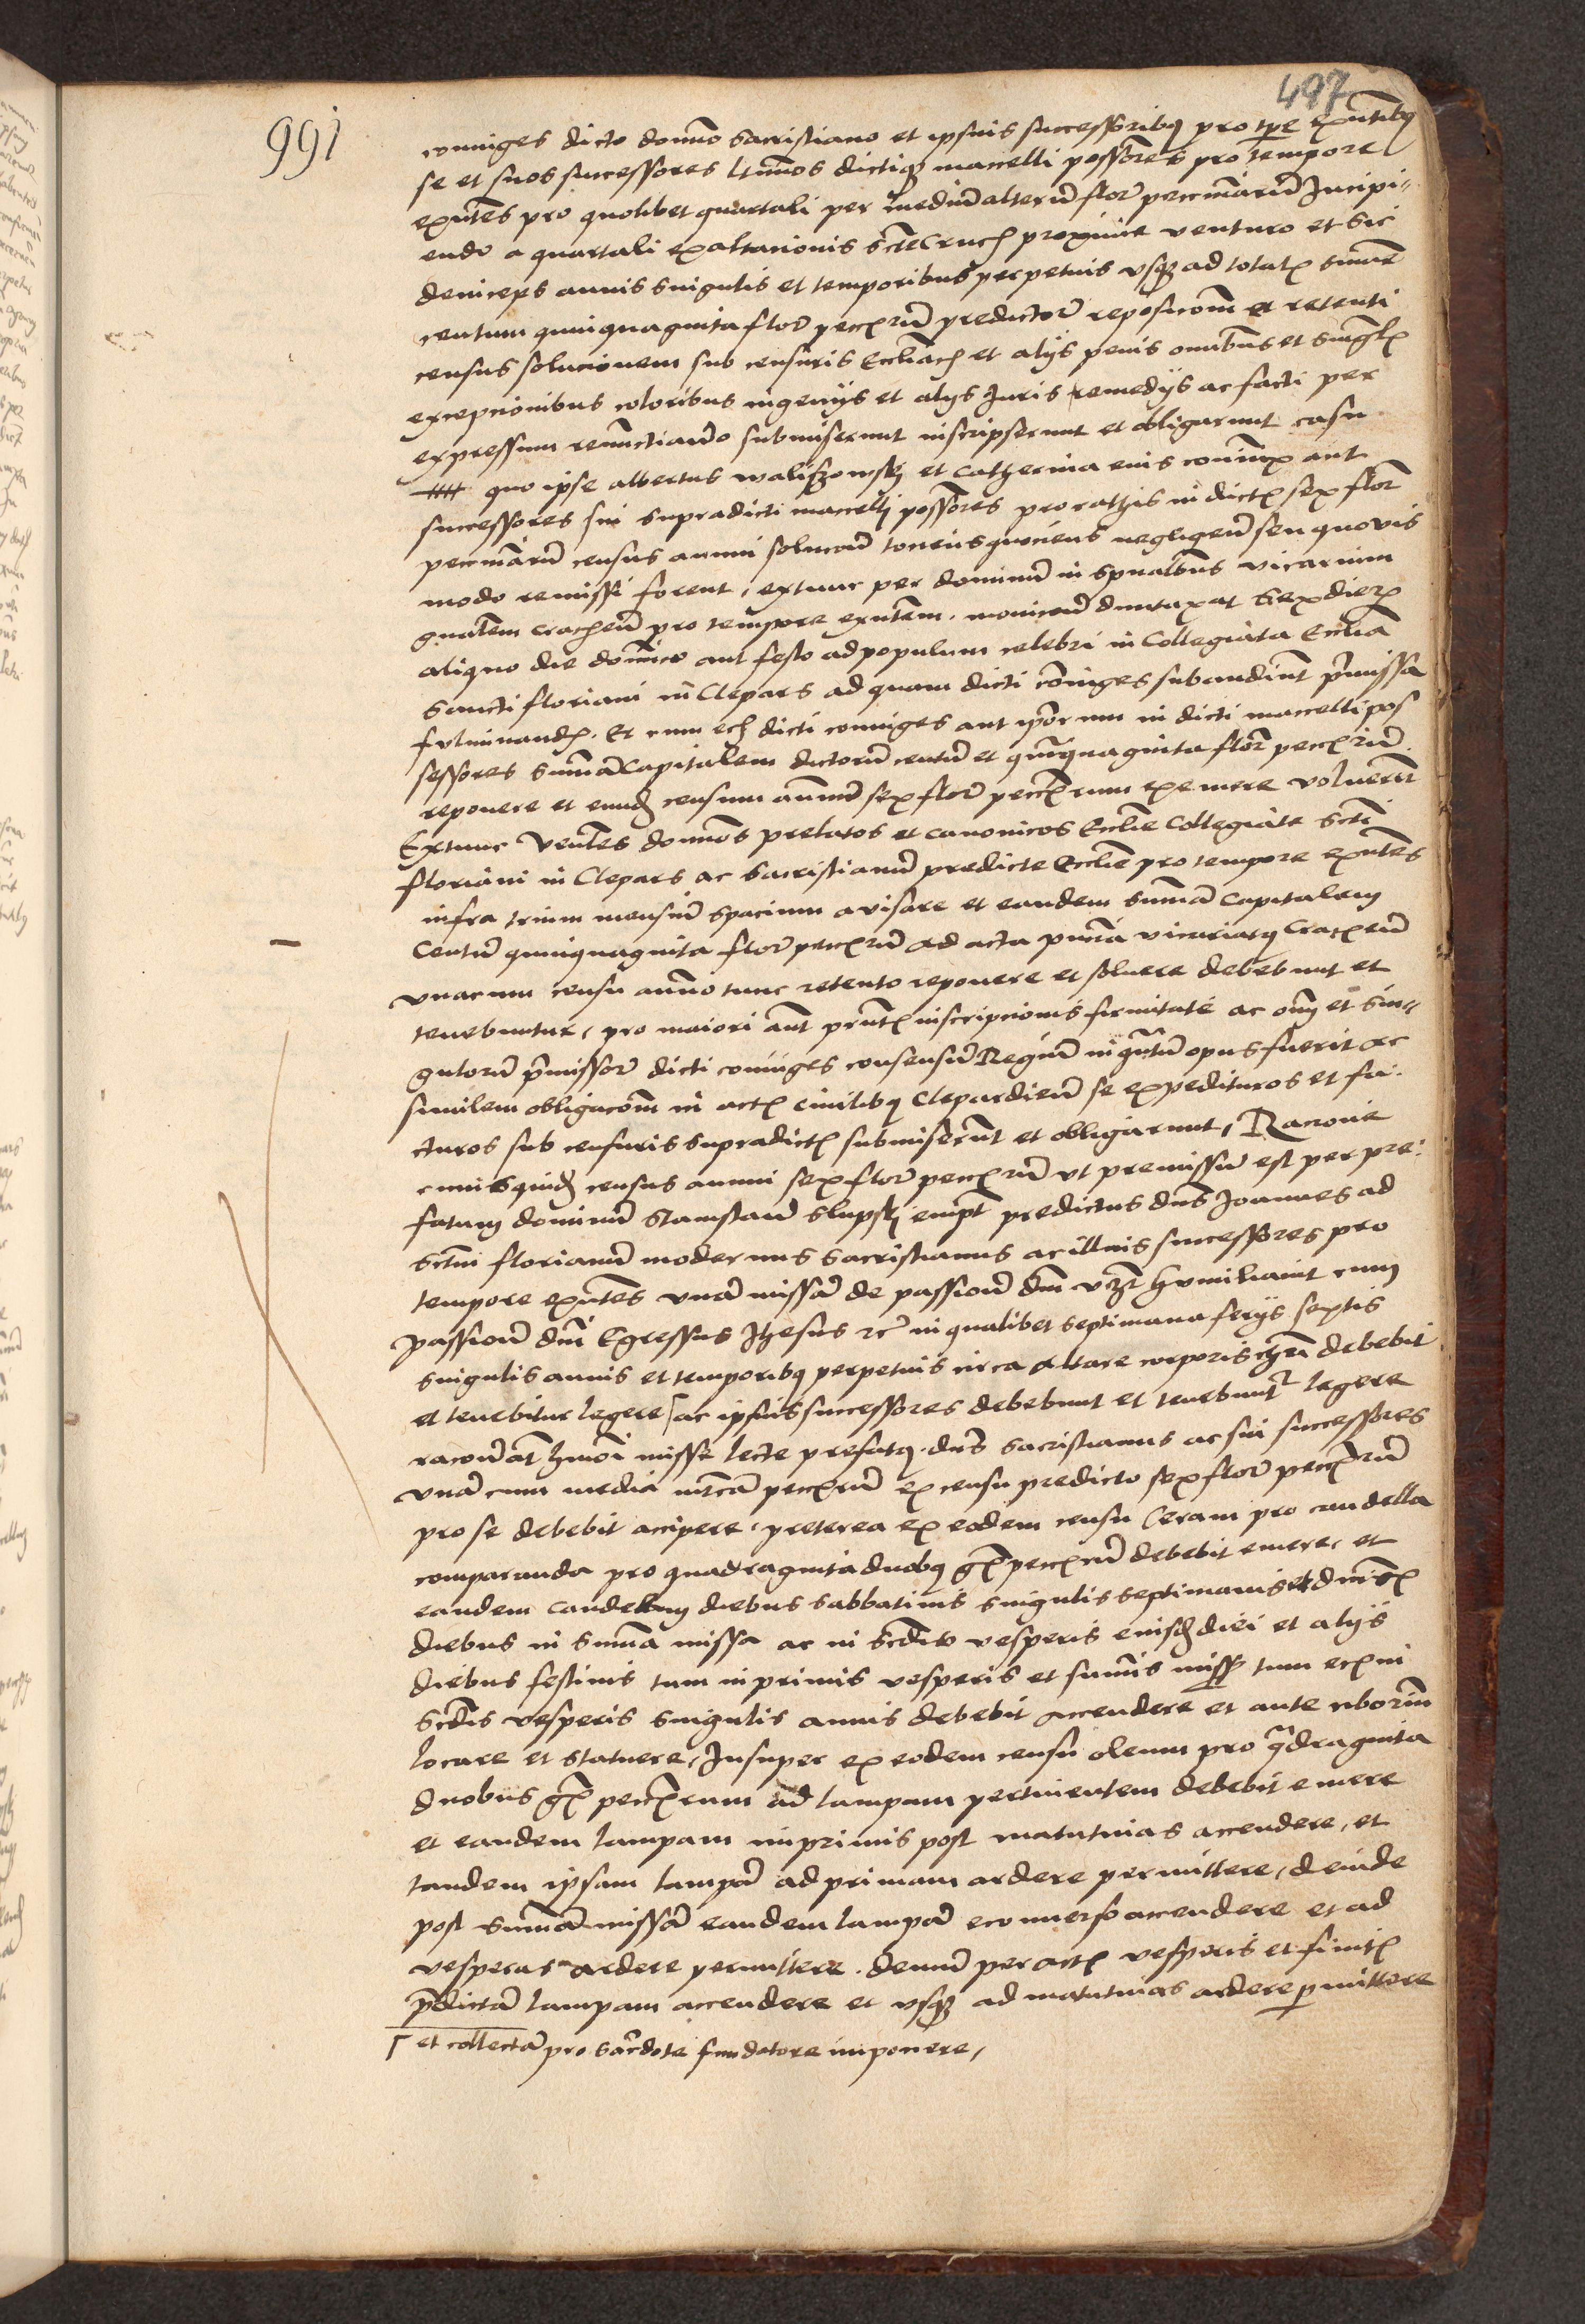 497
991
coniuges dicto domino Sacristiano et ipsius successoribus pro tpe exntibus
se et suos successores ltimos dictique maccelli possores pro tempore
exntes pro quolibet quartali per mediū alterū flor peccuniarū Incipi„
endo a quartali exaltacionis scte Crucis proxime venturo et sic
deinceps annis singulis et temporibus perpetuis vsque ad totalem summe
centum quinquaginta flor pecc rū predictor reposicom et retenti
census solucionem sub censuris Eccliacis et alijs penis omnibus et singlis
excepcionibus coloribus ingenijs et alijs Juris remedijs ac facti per
expressum renuntiando submiserunt inscripserunt et obligarunt casu
quo ipse albertus waliszowskj et Catherina eius coniunx aut
successores sui supradicti maccellj possores pro rathis in dictis sex flor
pecuniarū census annui solucōnē tociens quociens negligen seu quovis
modo remissi forent, extunc per dominū in spualibus vicarium
gnalem Craccen pro tempore exntem, monicōne duntaxat sex dierum
aliquo die dominico aut festo ad populum celebri in Collegiata Ecclia
Sancti floriani in Clepars ad quam dicti coniuges subaudiunt pmissa
fulminand. Et cum dicti coniuges aut ipsorum in dicti maccelli pos
sessores summā Capitalem dictorū centū et quinquaginta flor pecc rū
reponere et eund censum annuū sex flor pecc rum exemere voluerīt
Extunc Ventes dominos prelatos et canonicos Ecclie Collegiate scti
floriani in Clepars ac Sacristianū predicte Ecclie pro tempore exntes
infra trium mensiū spacium avisare et eandem summā Capitalem
Centū quinquaginta flor pecc rū ad acta vicariatus Craccen
vnacum censu annuo tunc retento reponere et soluere debebunt et
tenebuntur, pro maiori aut pntis inscripcionis firmitate ac omnj et sin„
gulorū pmissor dicti coniuges consensū Regiū in quātū opus fuerit ac
similem obligacōm in actis ciuilibus Clepardien se expedituros et fa„
cturos sub censuris supradictis submiserūnt et obligarunt, Racione
cuiusquid census annui sex flor pecc rū vt premissū est per pre„
fatum dominū Stanislaū Slupskj empt predictus dns Joannes ad
sctm florianū modernus Sacristianus ac illius successores pro
tempore exntes vnā missā de passione dni vzt humiliauit cum
passione dni Egressus Jhesus etc in qualibet septimana ferijs sextis
singulis annis et temporibus perpetuis circa altare corporis chri debebit
et tenebitur legere ⌈ ac ipsius successores debebunt et tenebuntur legere
racione at hmoi misse lecte prefatus dns Sacristianus ac sui successores
vnā cum media mrcā pecc rū ex censu predicto sex flor pecc rū
pro se debebit accipere, preterea ex eodem censu Ceram pro candella
comparanda pro quadraginta duobus gr pecc rū debebit emere, et
eandem candellam diebus sabbatinis singulis septimanis et dnicis
diebus in summa missa ac in scdis vesperis eiusd diei et alijs
diebus festiuis tum in primis vesperis et summis missis tum eciam in
scdis vesperis singulis annis debebit accendere et ante ciborium
locare et statuere, Insuper ex eodem censu oleum pro qdraginta
duobus gr pecc rum ad lampam pertinentem debebit emere
et eandem lampam inprimis post matutinas accendere, et
tandem ipsam lampā ad primam ardere permittere, deinde
post summā missā eandem lampā econuerso accendere et ad
vesperas ardere permittere. demū peractis vesperis et finitis
pdictā lampam accendere et vsque ad matutinas ardere pmittere
⌈ et collectā pro sacerdote fundatore imponere,